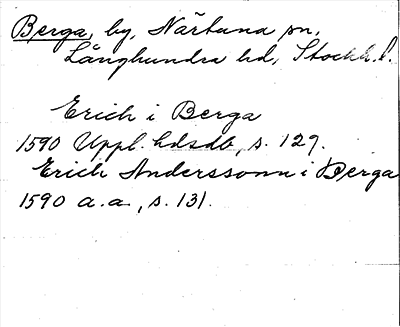 Berga, by, Närtuna sn,
Långhundra hd, Stockh. l.
Erich i Berga
1590 Uppl. hdsdb, s. 127.
Erich Anderssonn i Berga
1590 a.a., s. 131.